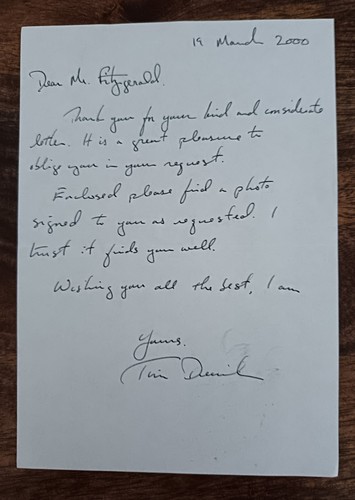 19 March 2000
Dear Mr. Fitzgerald.
Thank you for your kind and considerate
letter. It is a great pleasure to
oblige you in your request.
Enclosed please find a photo
signed to you as requested. I
trust it finds you well.
Wishing you all the best, I am
Yours.
Tim